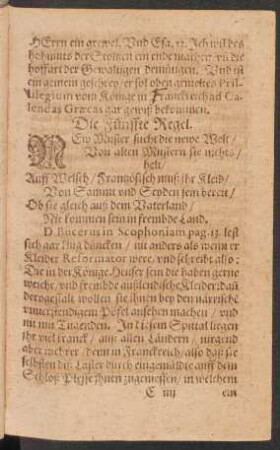 HErrn ein grewel. Vnd Esa. 13. Ich wil des
hohmuts der Stoltzen ein ende machen, vñ die
hoffart der Gewaltigen demütigen. Vnd ist
ein gemein geschrey / er sol oben gemeltes Pri-
uilegium vom Könige in Franckreich ad Ca-
lendas Græcas gar gewiß bekommen.
Die Fünffte Regel.
NEw Muster sucht die newe Welt /
Von alten Mustern sie nichts
helt /
Auff Welsch / Frantzösisch muß ihr Kleid /
Von Sammt vnd Seyden sein bereit /
Ob sie gleich auß dem Vaterland /
Nie kommen sein in frembde Land.
D. Bucerus in Scophoniam pag. 13. lest
sich gar klug düncken / nit anders als wenn er
Kleider Reformator were, vnd schreibt also:
Die in der Könige Heuser sein die haben gerne
weiche, vnd frembde außlendische Kleider: daß
derogestalt wollen sie ihnen bey den närrische
vnuerstendigem Pöfel ansehen machen / vnd
nit mit Tugenden. In diesem Spital liegen
ihr viel kranck / auß allen Ländern / nirgend
aber mehrer / denn in Franckreich / also daß sie
selbsten diß Laster durch ein gemälde auff dem
Schloß Plesse ihnen zugemessen / in welchem
E iiij
ein